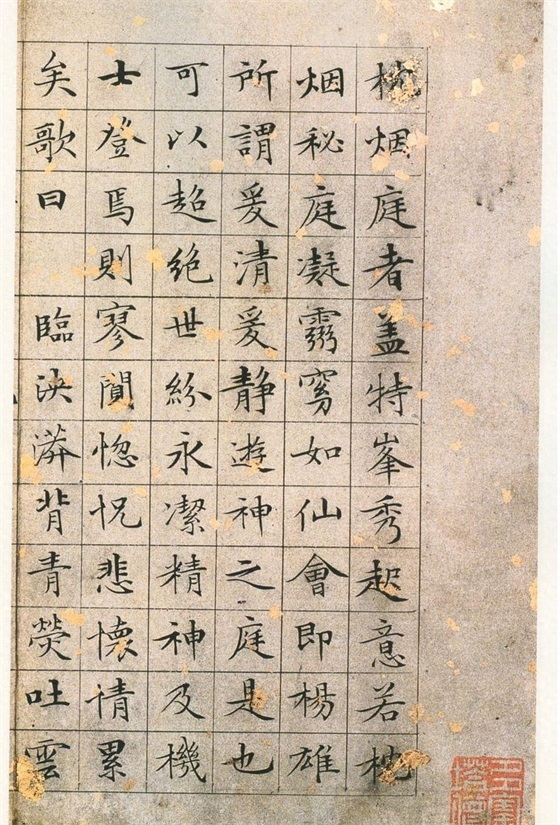 枕烟庭者盖特峯秀起意若枕
烟秘庭凝霛窅如仙會即楊雄
所謂爰清爰静遊神之庭是也
可以超絶世紛永潔精神及機
士登焉則寥閴惚怳悲懷情累
矣歌曰　臨泱漭背青熒吐雲